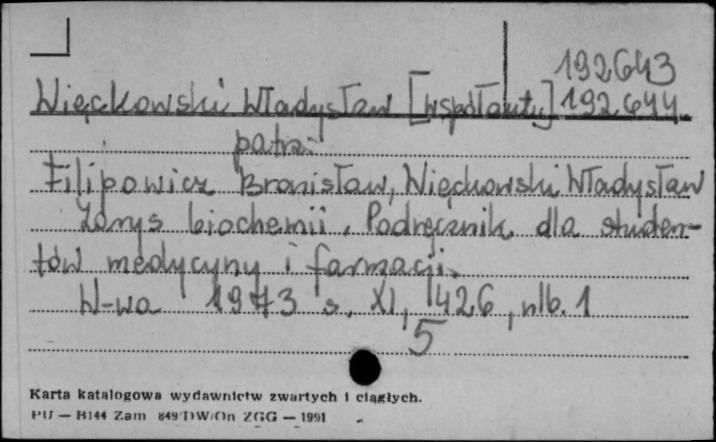 192643
Więckowski Władysław [współaut.] 192644
patrz:
Filipowicz Bronisław, Więckowski Władysław
Zarys biochemii. Podręcznik dla studen-
tów medycyny i farmacji.
W-wa 1973 s. XI, 426, nlb. 1
5
Karta katalogowa wydawnictw zwartych i ciągłych.
PU — B144 Zam 849/DW/On ZGG — 1991